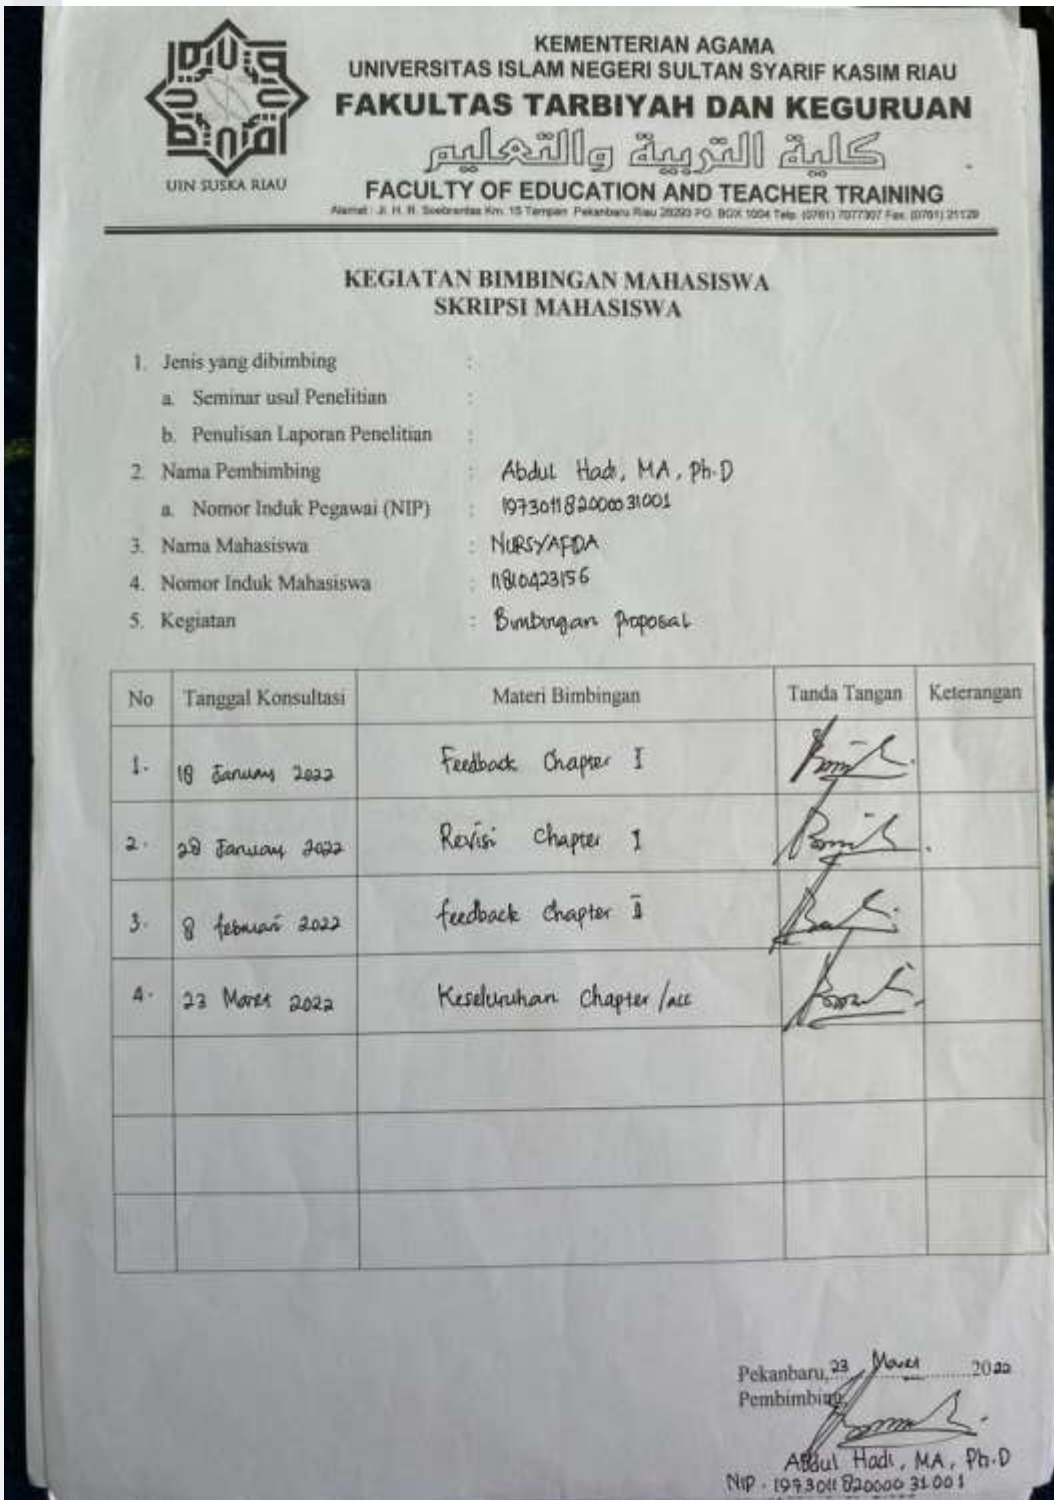 UIN SUSKA RIAU
KEMENTERIAN AGAMA
UNIVERSITAS ISLAM NEGERI SULTAN SYARIF KASIM RIAU
FAKULTAS TARBIYAH DAN KEGURUAN
كلية التربية والتعليم
FACULTY OF EDUCATION AND TEACHER TRAINING
Alamat : Jl. H. R. Soebrantas Km. 15 Tampan Pekanbaru Riau 28293 PO. BOX 1004 Telp. (0761) 7077307 Fax. (0761) 21129
KEGIATAN BIMBINGAN MAHASISWA
SKRIPSI MAHASISWA
1. Jenis yang dibimbing :
a. Seminar usul Penelitian :
b. Penulisan Laporan Penelitian :
2. Nama Pembimbing : Abdul Hadi, MA, Ph.D
a. Nomor Induk Pegawai (NIP) : 197301182000031001
3. Nama Mahasiswa : NURSYAFDA
4. Nomor Induk Mahasiswa : 11810423156
5. Kegiatan : Bimbingan Proposal
No Tanggal Konsultasi Materi Bimbingan Tanda Tangan Keterangan
1. 18 January 2022 Feedback Chapter I
2. 28 January 2022 Revisi Chapter I
3. 8 februari 2022 feedback Chapter II
4. 23 Maret 2022 Keseluruhan Chapter /acc
Pekanbaru, 23 Maret 2022
Pembimbing
Abdul Hadi, MA, Ph.D
NIP. 197301182000031001